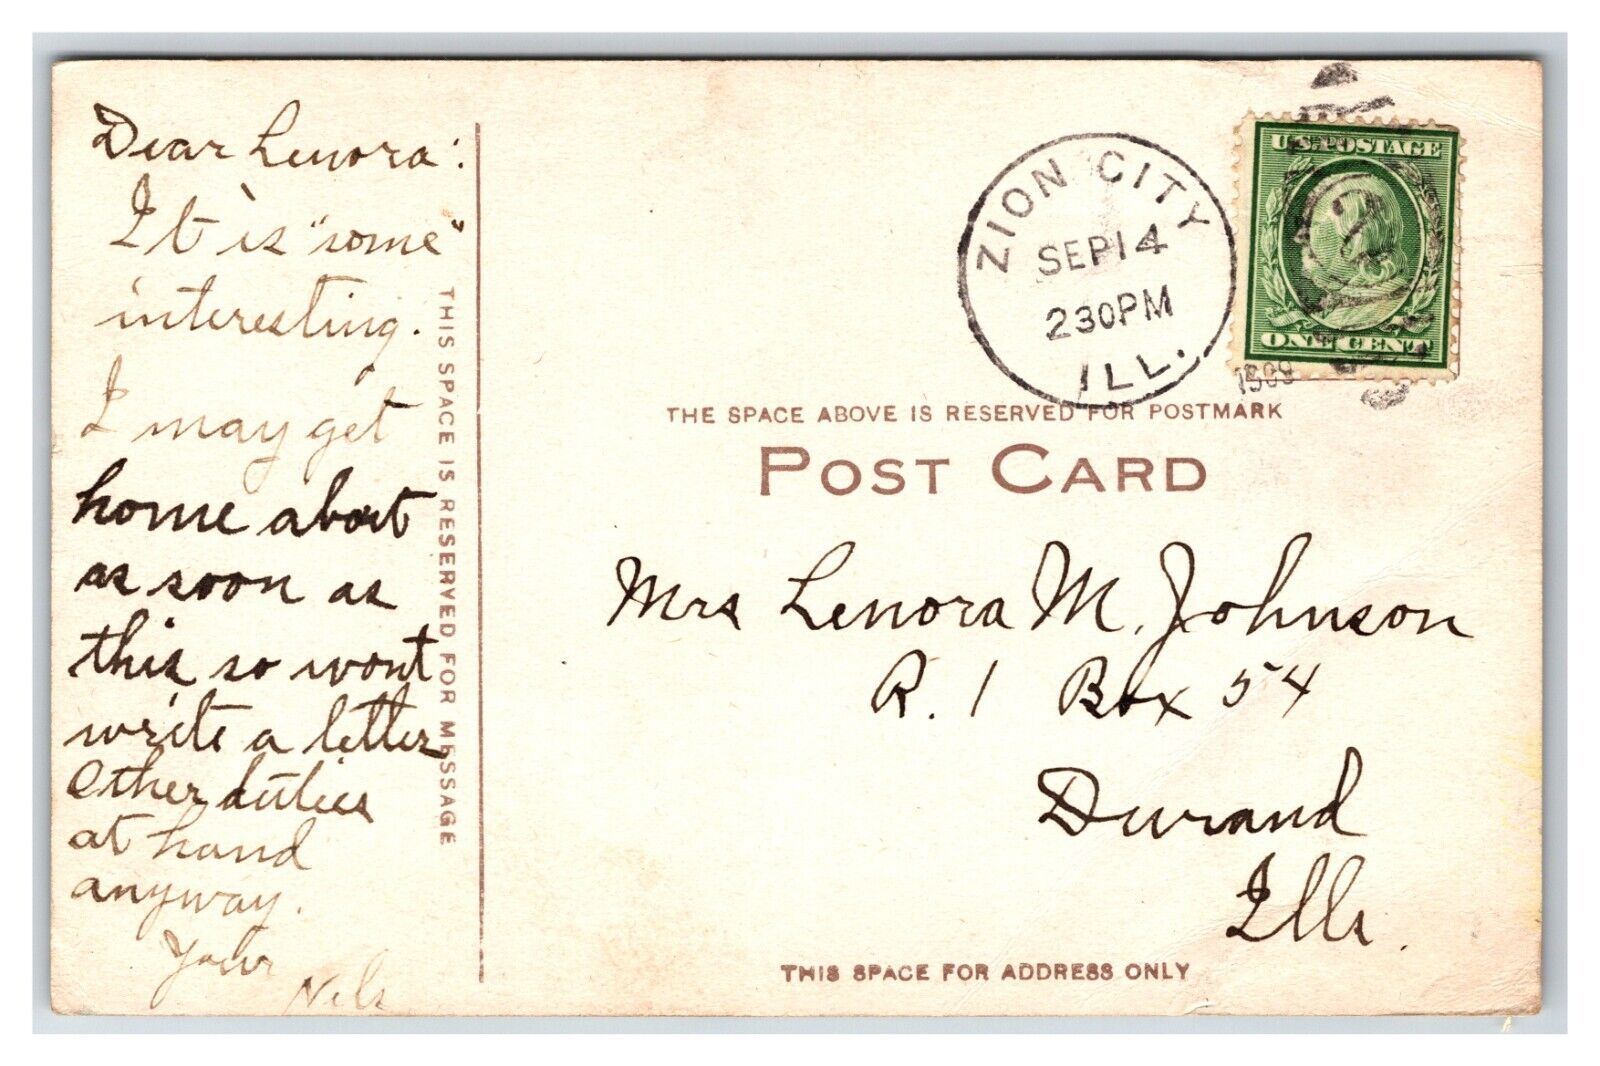 Dear Lenora:
It is "some"
interesting.
I may get
home about
as soon as
this so wont
write a letter
Other duties
at hand
anyway.
Your
Nels
THIS SPACE IS RESERVED FOR MESSAGE
ZION CITY
SEP 14
230PM
ILL.
1909
U.S. POSTAGE
ONE CENT
THE SPACE ABOVE IS RESERVED FOR POSTMARK
POST CARD
Mrs Lenora M. Johnson
R. 1 Box 54
Durand
Ills.
THIS SPACE FOR ADDRESS ONLY